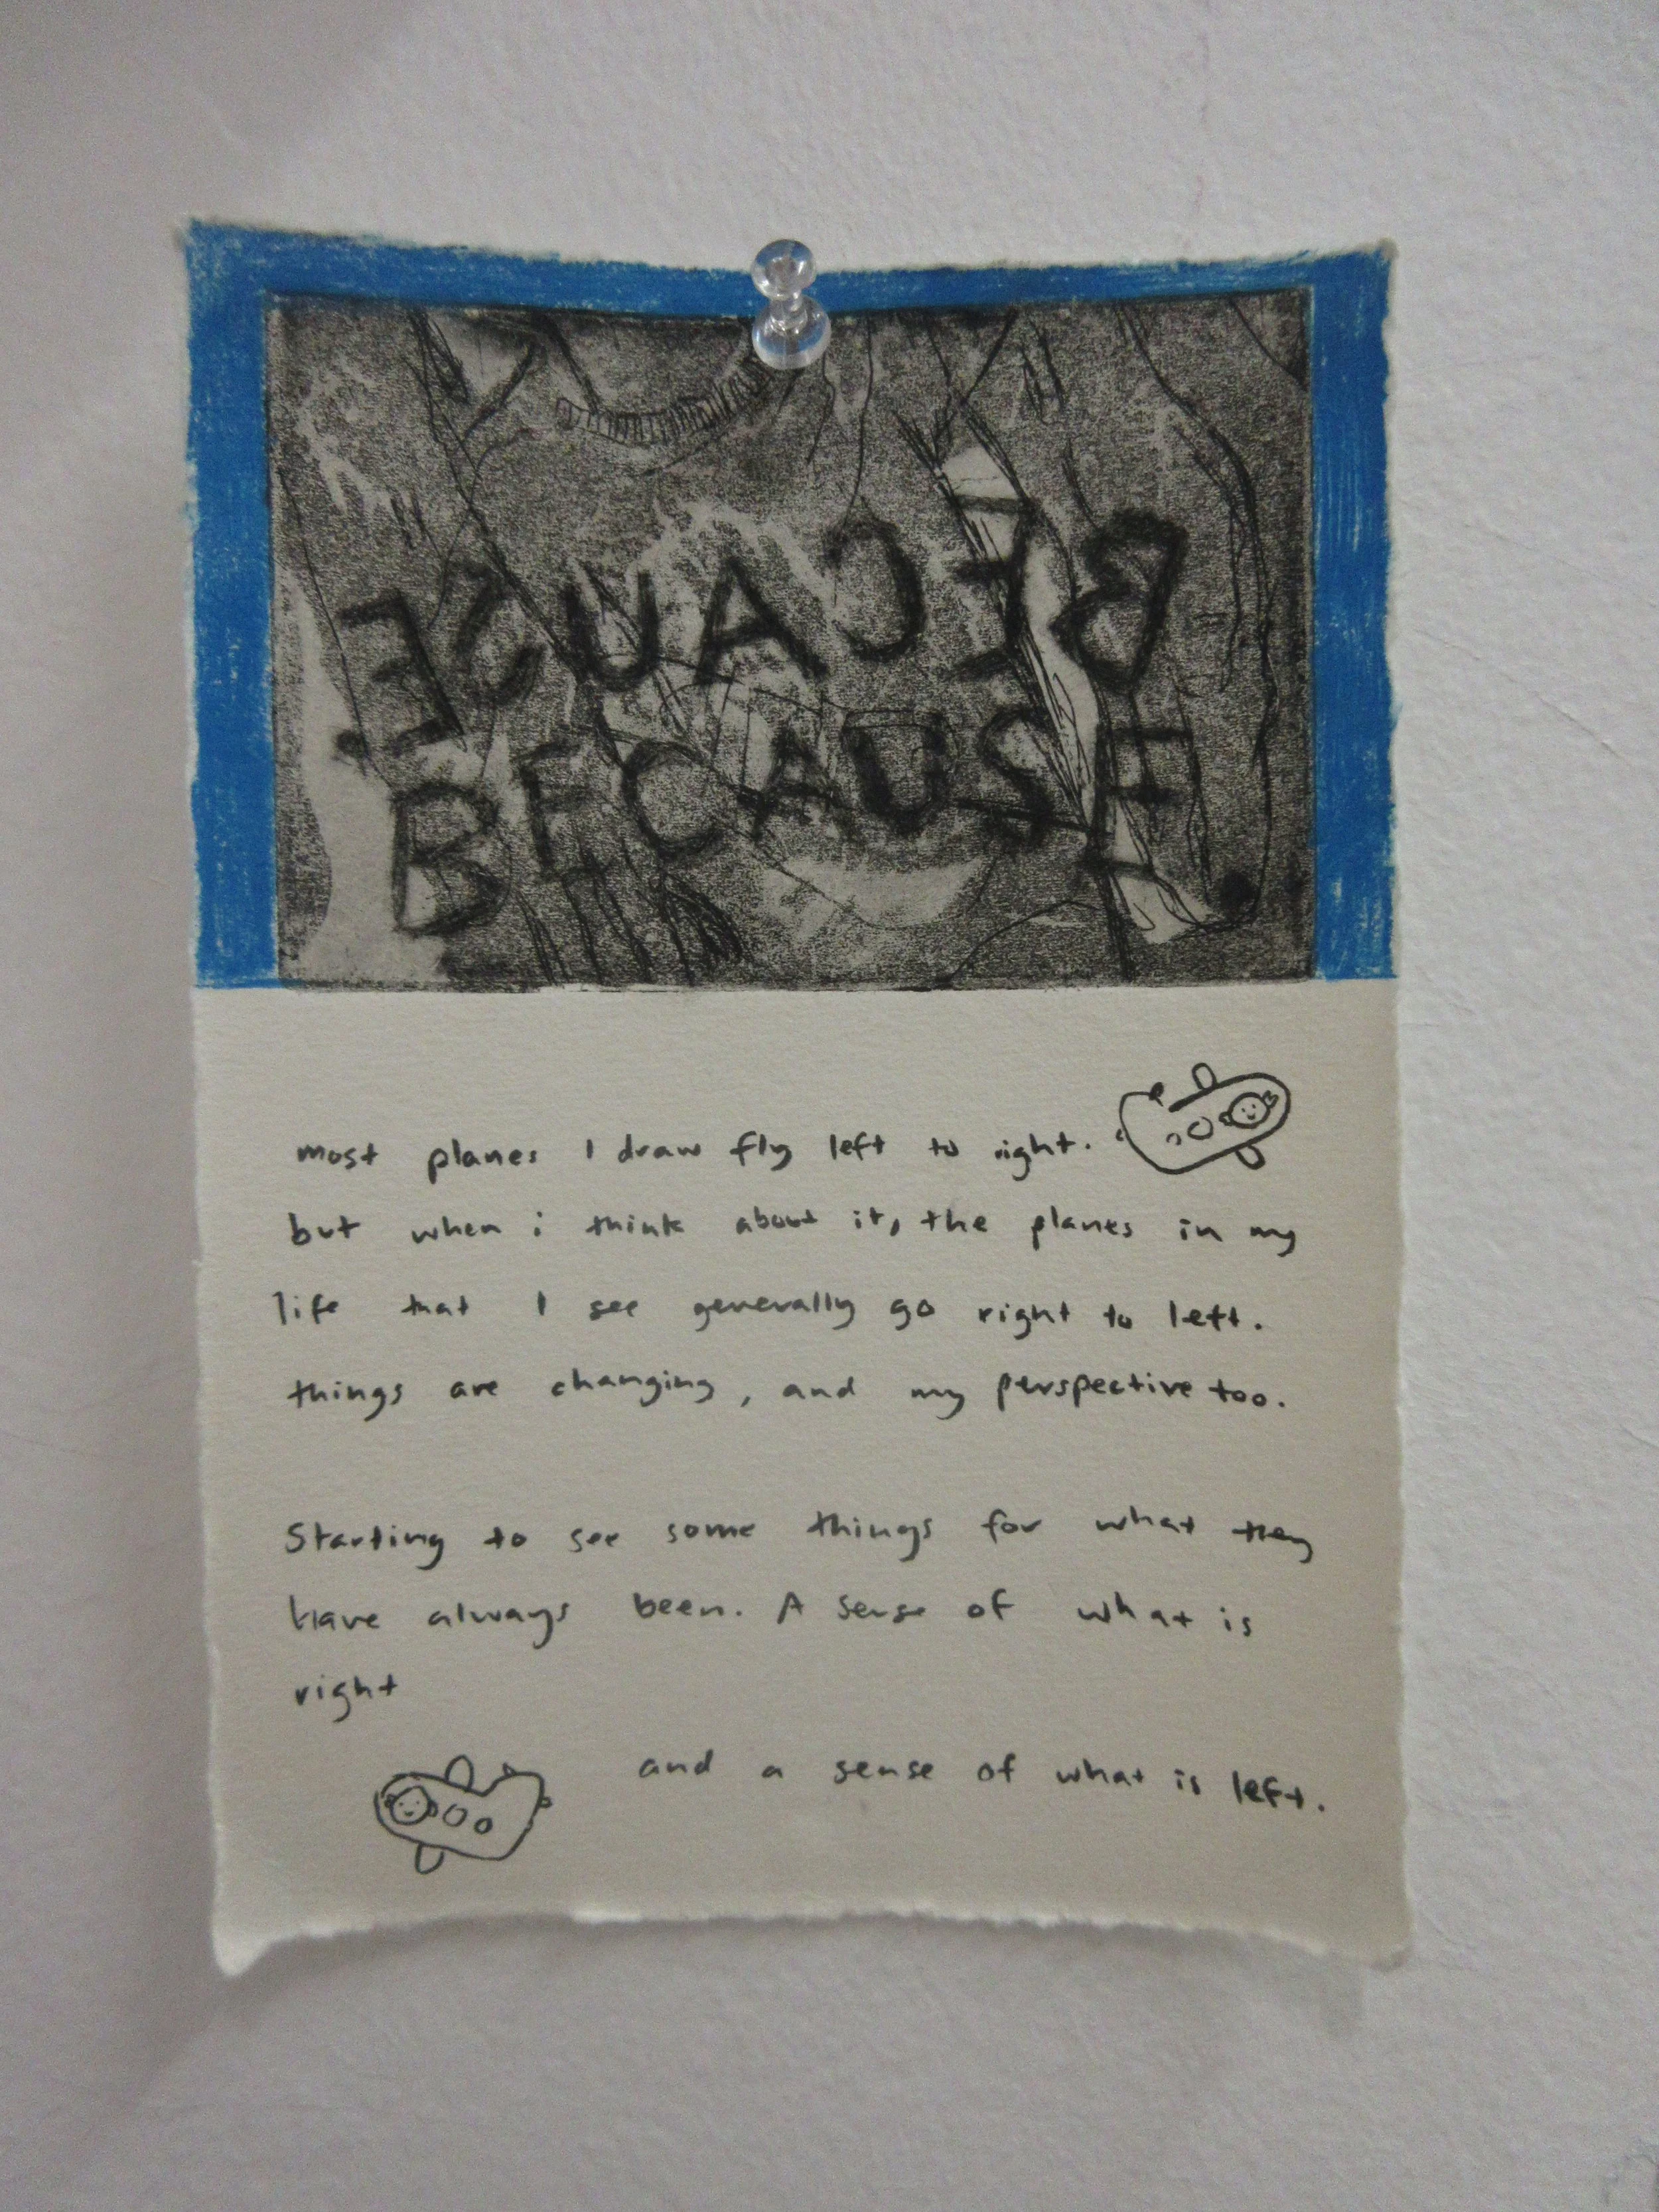 BECAUSE
BECAUSE
most planes I draw fly left to right.
but when i think about it, the planes in my
life that I see generally go right to left.
things are changing, and my perspective too.
Starting to see some things for what they
have always been. A sense of what is
right
and a sense of what is left.